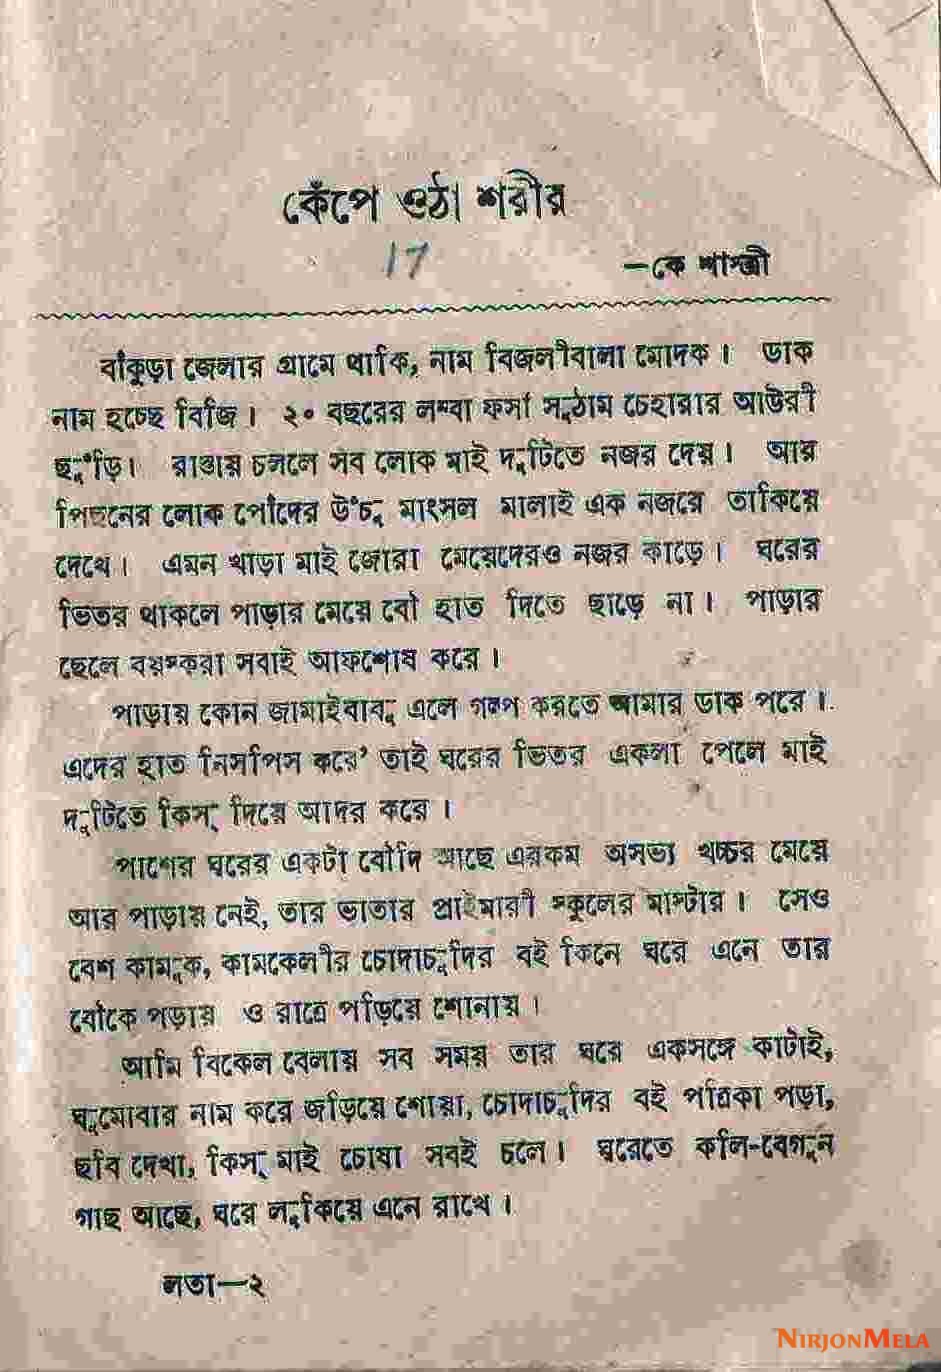 কেঁপে ওঠা শরীর
17
—কে শাস্ত্রী
বাঁকুড়া জেলার গ্রামে থাকি, নাম বিজলীবালা মোদক। ডাক
নাম হচ্ছে বিজি। ২০ বছরের লম্বা ফর্সা সুঠাম চেহারার আউরী
ছুঁড়ি। রাস্তায় চললে সব লোক মাই দুটিতে নজর দেয়। আর
পিছনের লোক পোঁদের উঁচু মাংসল মালাই এক নজরে তাকিয়ে
দেখে। এমন খাড়া মাই জোরা মেয়েদেরও নজর কাড়ে। ঘরের
ভিতর থাকলে পাড়ার মেয়ে বৌ হাত দিতে ছাড়ে না। পাড়ার
ছেলে বয়স্করা সবাই আফশোষ করে।
পাড়ায় কোন জামাইবাবু এলে গল্প করতে আমার ডাক পরে।
এদের হাত নিসপিস করে’ তাই ঘরের ভিতর একলা পেলে মাই
দুটিতে কিস্ দিয়ে আদর করে।
পাশের ঘরের একটা বৌদি আছে এরকম অসভ্য খচ্চর মেয়ে
আর পাড়ায় নেই, তার ভাতার প্রাইমারী স্কুলের মাস্টার। সেও
বেশ কামুক, কামকেলীর চোদাচুদির বই কিনে ঘরে এনে তার
বৌকে পড়ায় ও রাত্রে পড়িয়ে শোনায়।
আমি বিকেল বেলায় সব সময় তার ঘরে একসঙ্গে কাটাই,
ঘুমোবার নাম করে জড়িয়ে শোয়া, চোদাচুদির বই পত্রিকা পড়া,
ছবি দেখা, কিস্ মাই চোষা সবই চলে। ঘরেতে কলি-বেগুন
গাছ আছে, ঘরে লুকিয়ে এনে রাখে।
লতা—২
NIRJONMELA